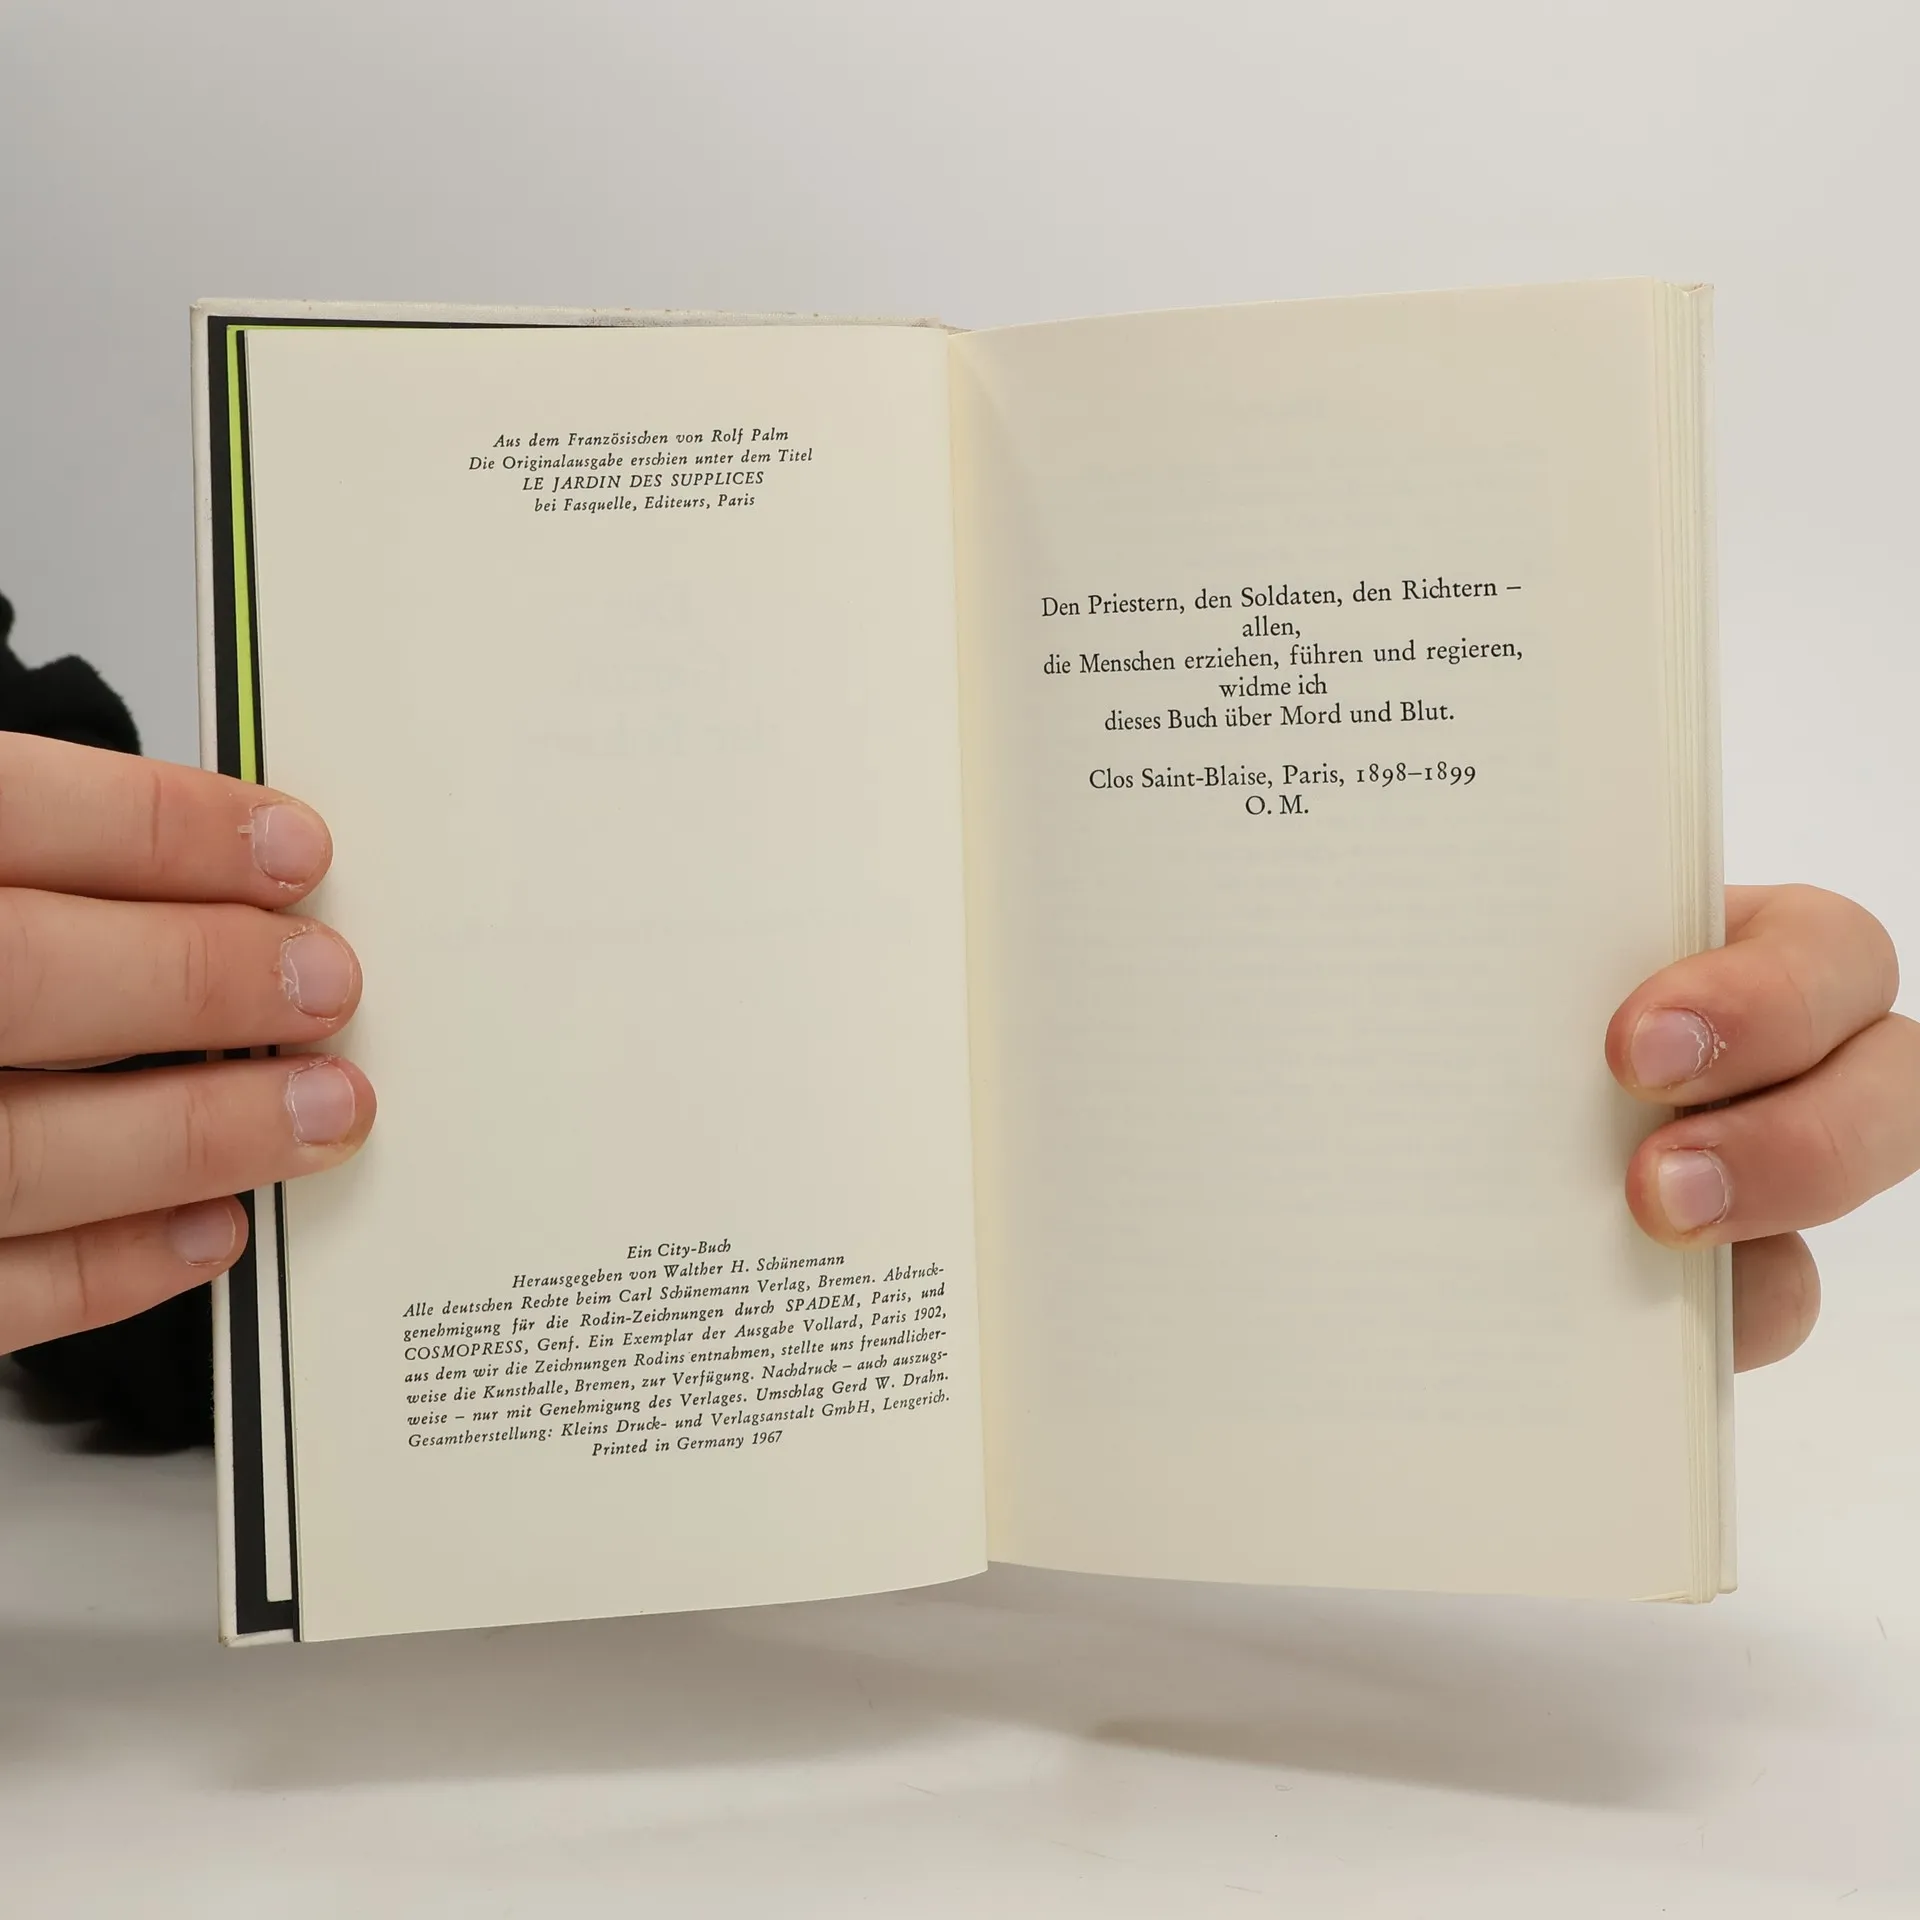 Aus dem Französischen von Rolf Palm
Die Originalausgabe erschien unter dem Titel
LE JARDIN DES SUPPLICES
bei Fasquelle, Editeurs, Paris
Ein City-Buch
Herausgegeben von Walther H. Schünemann
Alle deutschen Rechte beim Carl Schünemann Verlag, Bremen. Abdruck-
genehmigung für die Rodin-Zeichnungen durch SPADEM, Paris, und
COSMOPRESS, Genf. Ein Exemplar der Ausgabe Vollard, Paris 1902,
aus dem wir die Zeichnungen Rodins entnahmen, stellte uns freundlicher-
weise die Kunsthalle, Bremen, zur Verfügung. Nachdruck – auch auszugs-
weise – nur mit Genehmigung des Verlages. Umschlag Gerd W. Drahn.
Gesamtherstellung: Kleins Druck- und Verlagsanstalt GmbH, Lengerich.
Printed in Germany 1967
Den Priestern, den Soldaten, den Richtern –
allen,
die Menschen erziehen, führen und regieren,
widme ich
dieses Buch über Mord und Blut.
Clos Saint-Blaise, Paris, 1898–1899
O. M.